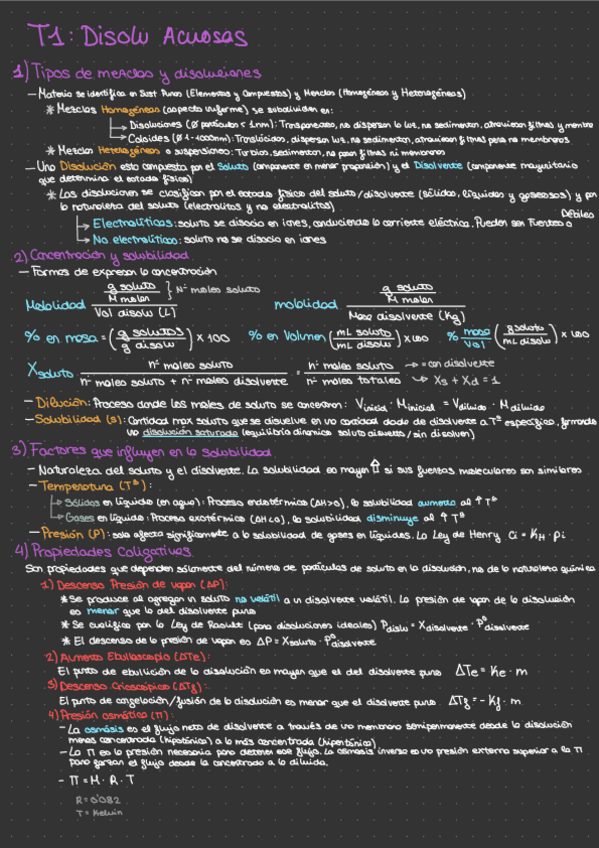 T1: Disolu Acuosas
1) Tipos de mezclas y disoluciones
— Materia se identifica en Sust Puras (Elementos y Compuestos) y Mezclas (Homogéneas y Heterogéneas)
* Mezclas Homogéneas (aspecto uniforme) se subdividen en:
→ Disoluciones (Ø partículas < 1nm): Transparentes, no dispersan la luz, no sedimentan, atraviesan filtros y membra
→ Coloides (Ø 1-1000nm): Translúcidos, dispersan luz, no sedimentan, atraviesan filtros pero no membranas
* Mezclas Heterogéneas o suspensiones: Turbias, sedimentan, no pasan filtros ni membranas
— Una Disolución esta compuesta por el Soluto (componente en menor proporción) y el Disolvente (componente mayoritario
que determina el estado físico)
* Las disoluciones se clasifican por el estado físico del soluto/disolvente (sólidas, líquidas y gaseosas) y por
la naturaleza del soluto (electrolitos y no electrolitos)
→ Electrolíticas: soluto se disocia en iones, conduciendo la corriente eléctrica. Pueden ser Fuertes o Débiles
→ No electrolíticas: soluto no se disocia en iones
2) Concentración y solubilidad
— Formas de expresar la concentración
Molaridad g soluto / M molar } Nº moles soluto / Vol disolu (L)
molalidad g soluto / M molar / Masa disolvente (Kg)
% en masa = (g solutos / g disolu) x 100 % en Volumen (mL soluto / mL disolu) x 100 % masa/Vol (g soluto / mL disolu) x 100
Xsoluto nº moles soluto / nº moles soluto + nº moles disolvente = nº moles soluto / nº moles totales → = con disolvente
→ Xs + Xd = 1
— Dilución: Proceso donde los moles de soluto se conservan: Vinicial · Minicial = Vdiluido · Mdiluido
— Solubilidad (s): Cantidad max soluto que se disuelve en una cantidad dada de disolvente a Tª específica, formando
una disolución saturada (equilibrio dinámico soluto disuelto/sin disolver)
3) Factores que influyen en la solubilidad
— Naturaleza del soluto y el disolvente. La solubilidad es mayor ⇑ si sus fuerzas moleculares son similares
— Temperatura (Tª):
→ Sólidos en líquidos (en agua): Proceso endotérmico (ΔH>0), la solubilidad aumenta al ↑ Tª
→ Gases en líquido: Proceso exotérmico (ΔH<0), la solubilidad disminuye al ↑ Tª
— Presión (P): solo afecta significamente a la solubilidad de gases en líquidos. La Ley de Henry Ci = KH · Pi
4) Propiedades Coligativas
Son propiedades que dependen sólamente del número de partículas de soluto en la disolución, no de la naturaleza química
1) Descenso Presión de vapor (ΔP):
* Se produce al agregar un soluto no volátil a un disolvente volátil. La presión de vapor de la disolución
es menor que la del disolvente puro
* Se cuantifica por la Ley de Raoult (para disoluciones ideales) Pdisolu = Xdisolvente · P°disolvente
* El descenso de la presión de vapor es ΔP = Xsoluto · P°disolvente
2) Aumento Ebulloscópico (ΔTe):
El punto de ebullición de la disolución es mayor que el del disolvente puro ΔTe = Ke · m
3) Descenso Crioscópico (ΔTf):
El punto de congelación/fusión de la disolución es menor que el disolvente puro ΔTf = - Kf · m
4) Presión osmótica (Π):
— La osmósis es el flujo neto de disolvente a través de una membrana semipermeable desde la disolución
menos concentrada (hipotónica) a la más concentrada (hipertónica)
— La Π es la presión necesaria para detener ese flujo. La osmosis inversa es una presión externa superior a la Π
para forzar el flujo desde la concentrada a la diluida.
— Π = M · R · T
R = 0'082
T = Kelvin